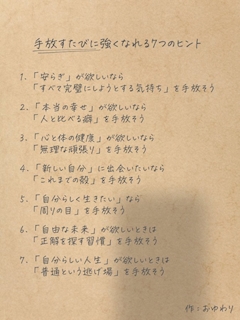 手放すたびに強くなれる7つのヒント
1. 「安らぎ」が欲しいなら
「すべて完璧にしようとする気持ち」を手放そう
2. 「本当の幸せ」が欲しいなら
「人と比べる癖」を手放そう
3. 「心と体の健康」が欲しいなら
「無理な頑張り」を手放そう
4. 「新しい自分」に出会いたいなら
「これまでの殻」を手放そう
5. 「自分らしく生きたい」なら
「周りの目」を手放そう
6. 「自由な未来」が欲しいときは
「正解を探す習慣」を手放そう
7. 「自分らしい人生」が欲しいときは
「普通という逃げ場」を手放そう
作:おゆわり